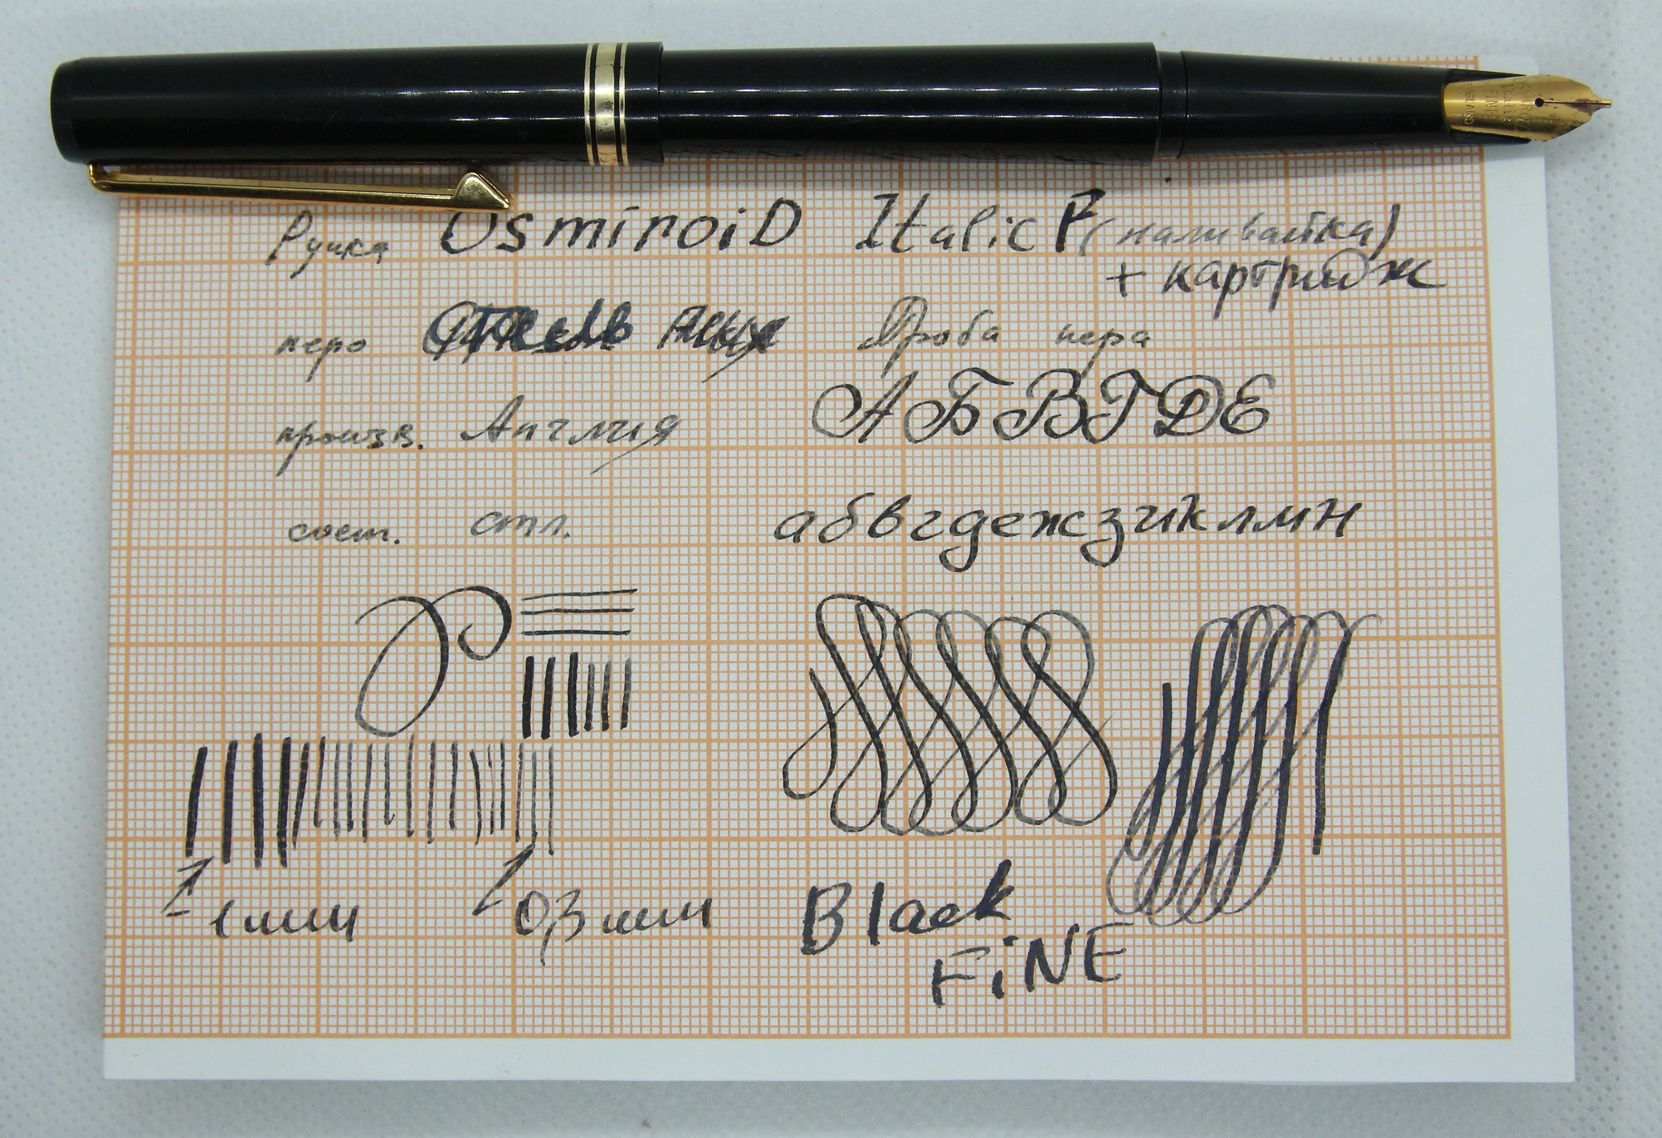 Ручка Osmiroid Italic F (наливайка)
+ картридж
перо Проба пера
произв. Англия АБВГДЕ
сост. отл. абвгдежзиклмн
1 мм 0,3 мм Black
FiNE